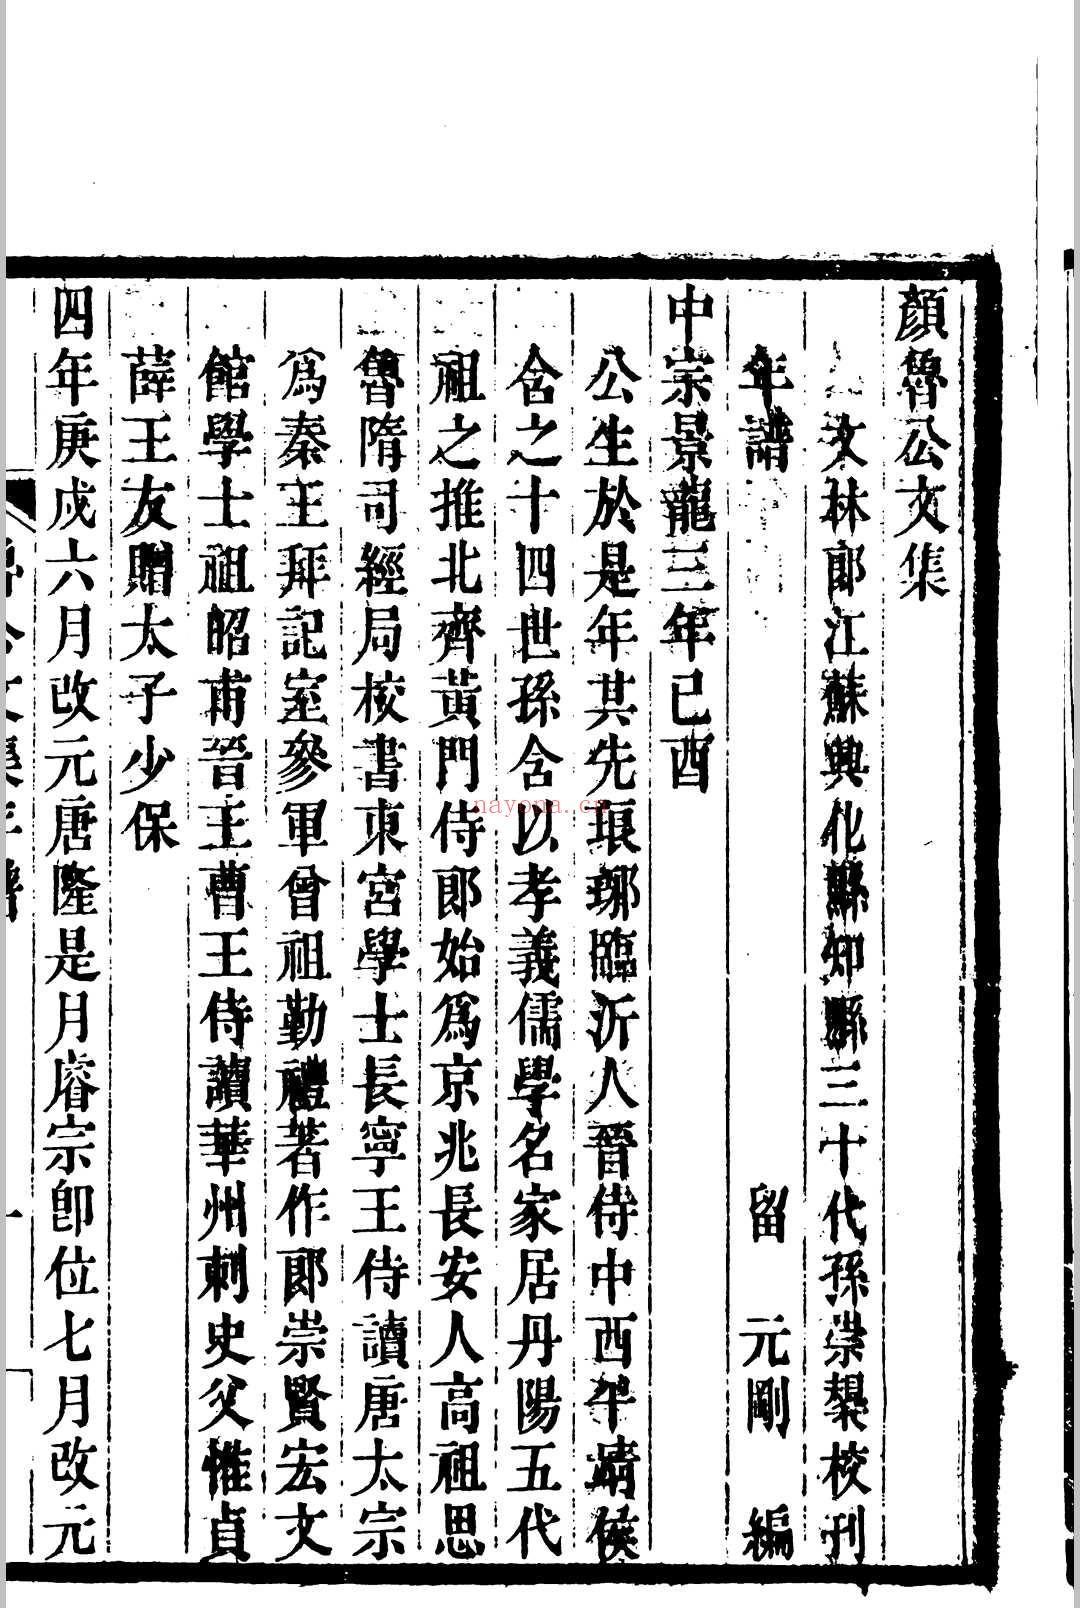 顏魯公文集
文林郎江蘇興化縣知縣三十代孫崇槼校刊
年譜 留元剛編
中宗景龍三年己酉
公生於是年其先琅琊臨沂人晉侍中西平靖侯
含之十四世孫含以孝義儒學名家居丹陽五代
祖之推北齊黃門侍郎始爲京兆長安人高祖思
魯隋司經局校書東宮學士長寧王侍讀唐太宗
爲秦王拜記室參軍曾祖勤禮著作郎崇賢宏文
館學士祖昭甫晉王曹王侍讀華州刺史父惟貞
薛王友贈太子少保
四年庚戍六月改元唐隆是月睿宗卽位七月改元
魯公文集年譜 一
nayona.cn